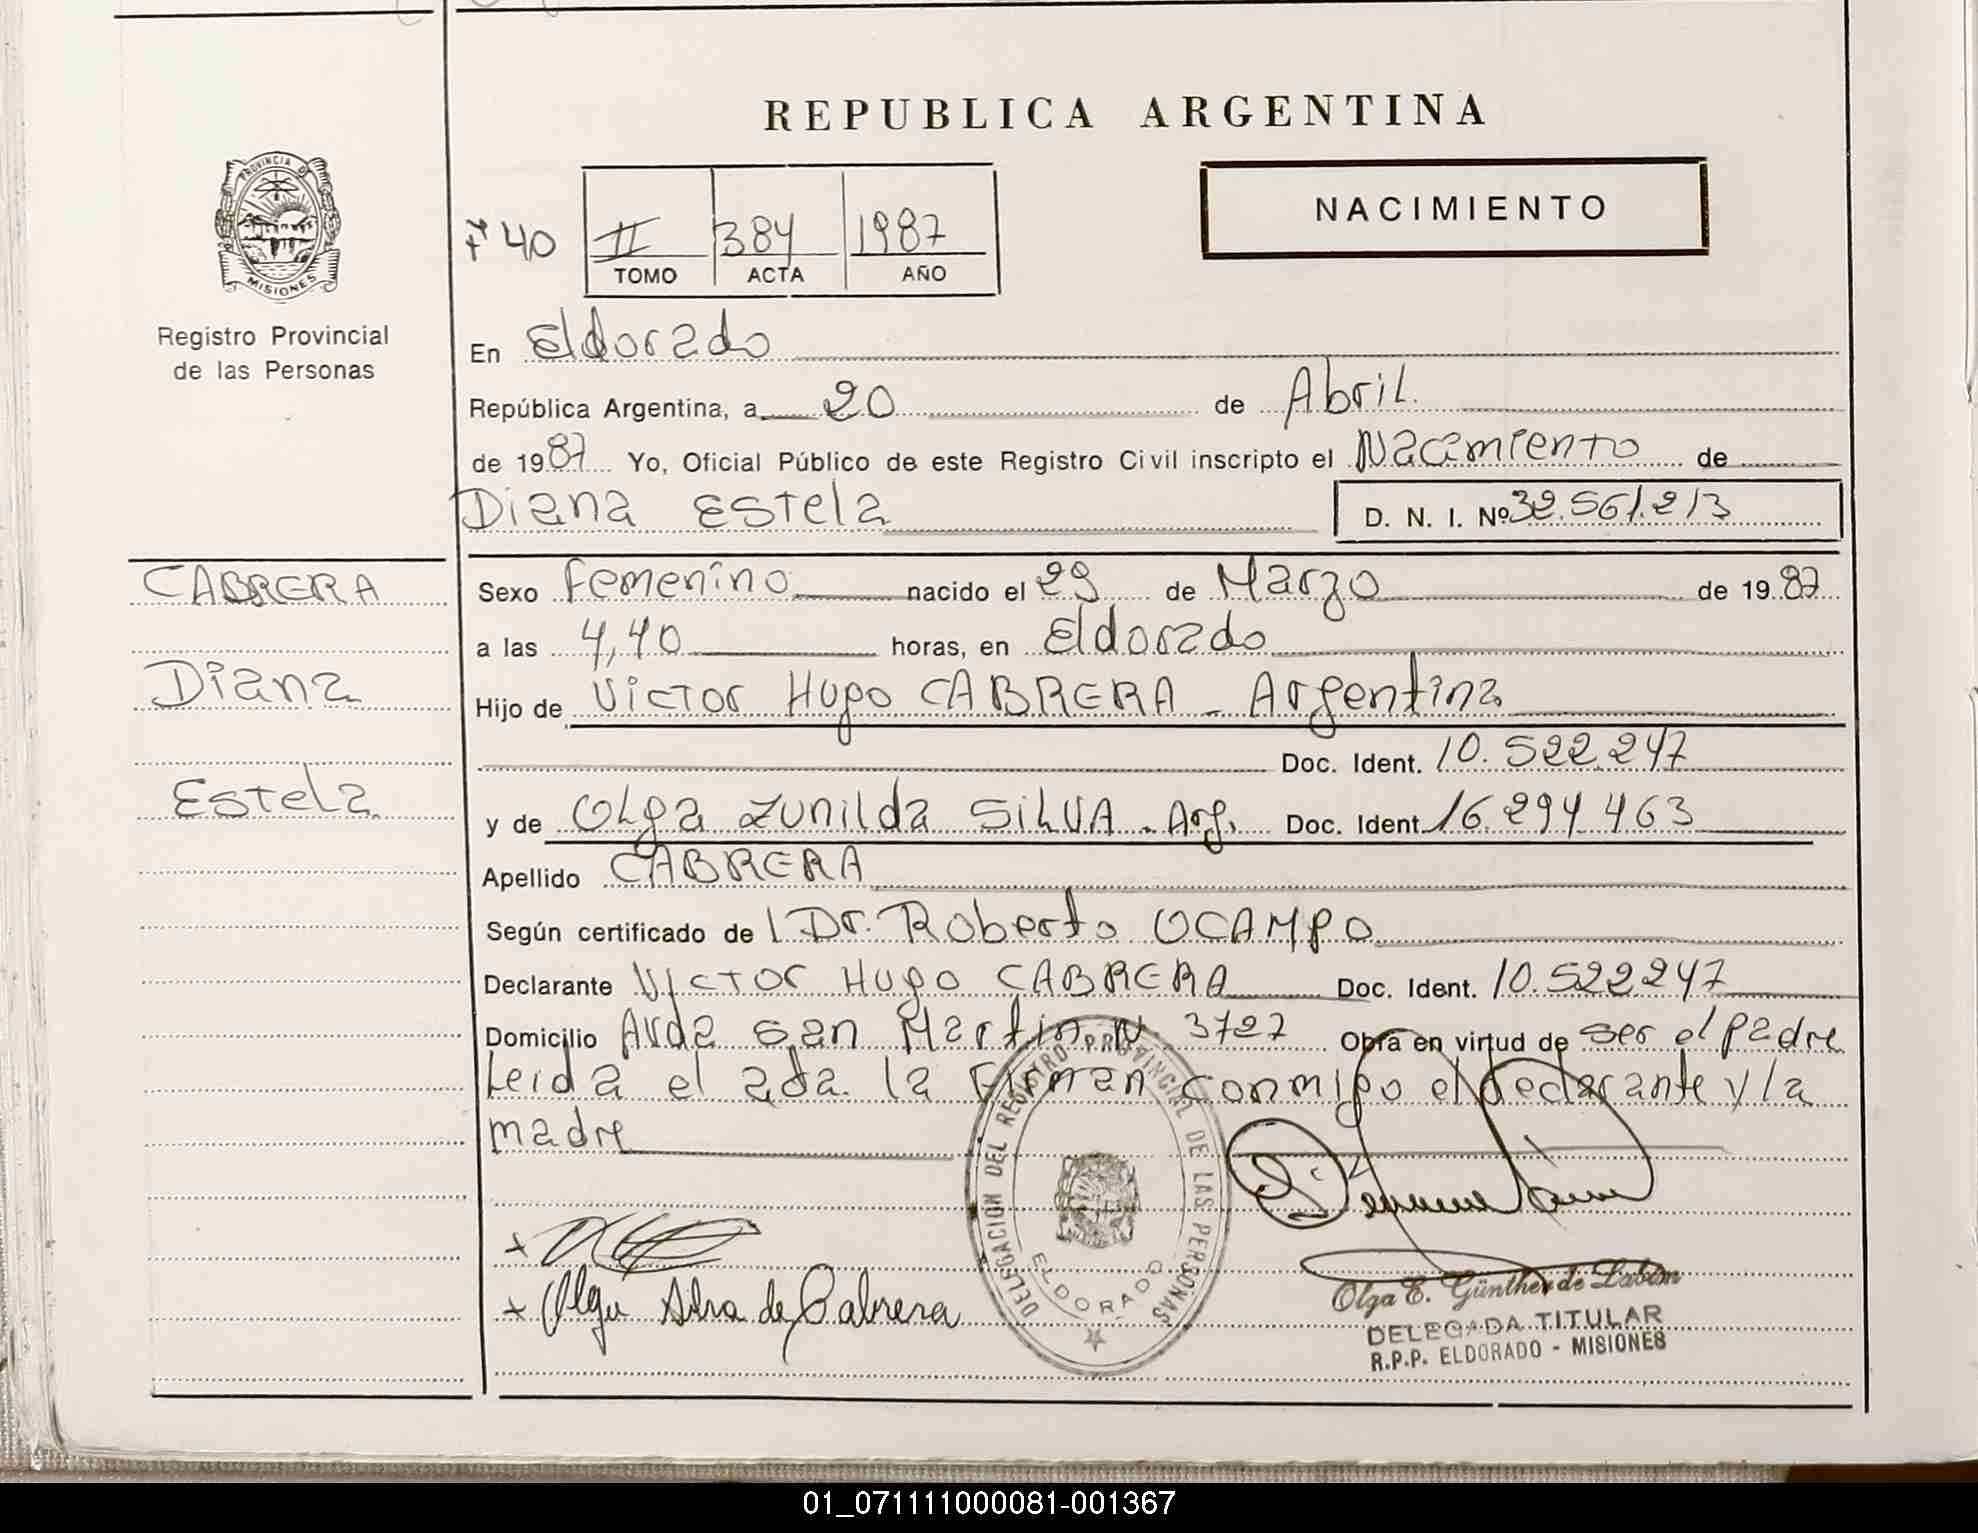 REPUBLICA ARGENTINA
NACIMIENTO
Fº 40
II 384 1987
TOMO ACTA AÑO
PROVINCIA DE
MISIONES
Registro Provincial
de las Personas
En Eldorado
República Argentina, a 20 de Abril.
de 1987 Yo, Oficial Público de este Registro Civil inscripto el Nacimiento de
Diana Estela D. N. I. Nº 32.561.213
CABRERA
Diana
Estela
Sexo Femenino nacido el 29 de Marzo de 1987
a las 4,40 horas, en Eldorado
Hijo de Victor Hugo CABRERA - Argentina
Doc. Ident. 10.522.247
y de Olga Zunilda SILVA - Arg. Doc. Ident. 16.294.463
Apellido CABRERA
Según certificado de l Dr. Roberto OCAMPO
Declarante Victor Hugo CABRERA Doc. Ident. 10.522.247
Domicilio Avda San Martin Nº 3727 Obra en virtud de ser el padre
Leida el acta. la Firman conmigo el declarante y la
madre
DELEGACION DEL REGISTRO PROVINCIAL DE LAS PERSONAS
ELDORADO
+ Olga Silva de Cabrera
Olga E. Günther de Labim
DELEGADA TITULAR
R.P.P. ELDORADO - MISIONES
01_071111000081-001367